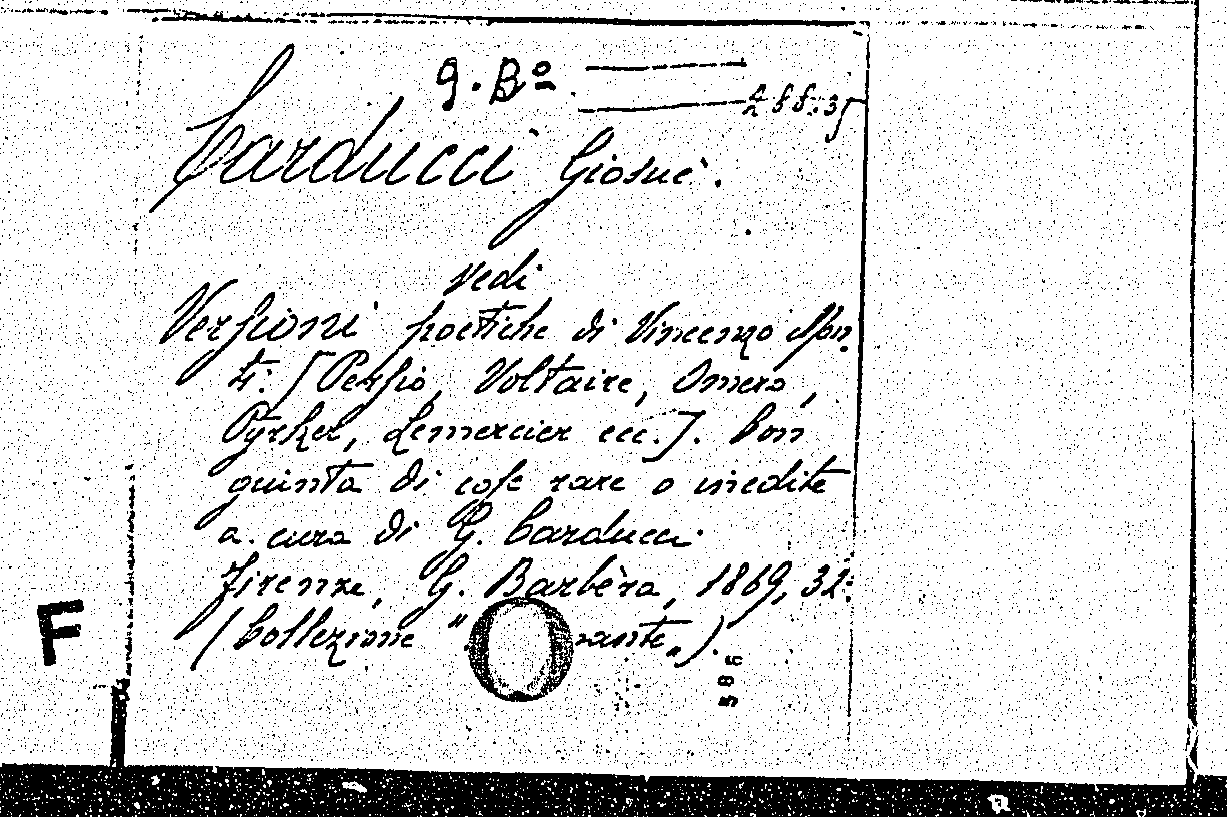 9. Bª
288.35
Carducci Giosuè.
Vedi
Versioni poetiche di Vincenzo Mon-
ti: [Persio, Voltaire, Omero,
Pyrker, Lemercier ecc.]. Con
giunta di cose rare o inedite
a cura di G. Carducci.
Firenze, G. Barbèra, 1869, 32º
(Collezione " ante„).
F